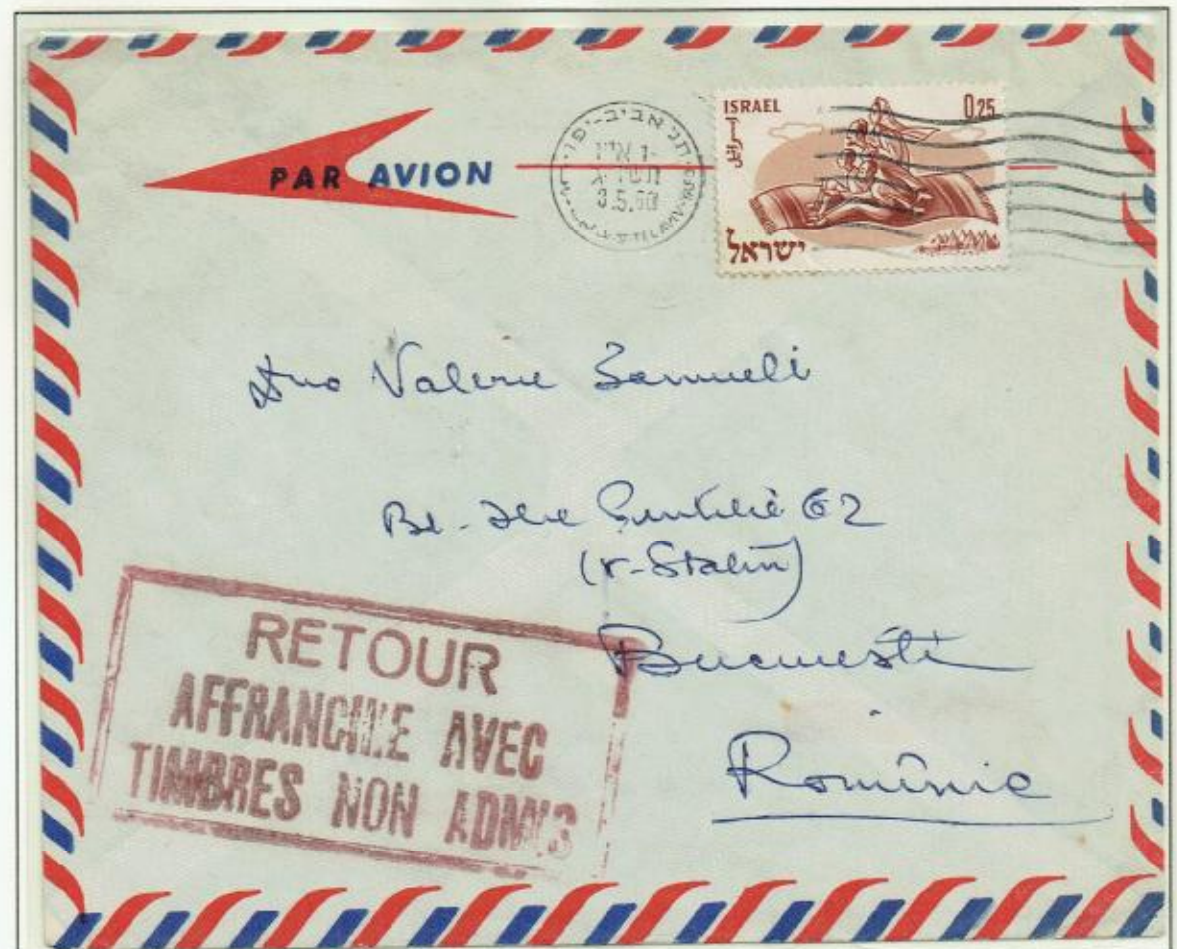 PAR AVION
תל אביב-יפו
TEL AVIV-YAFO
3.5.60
ISRAEL 0.25
اسرائيل
ישראל
Valerie Samueli
Bd. Ilie Pintilie 62
(v-Stalin)
București
România
RETOUR
AFFRANCHIE AVEC
TIMBRES NON ADMIS